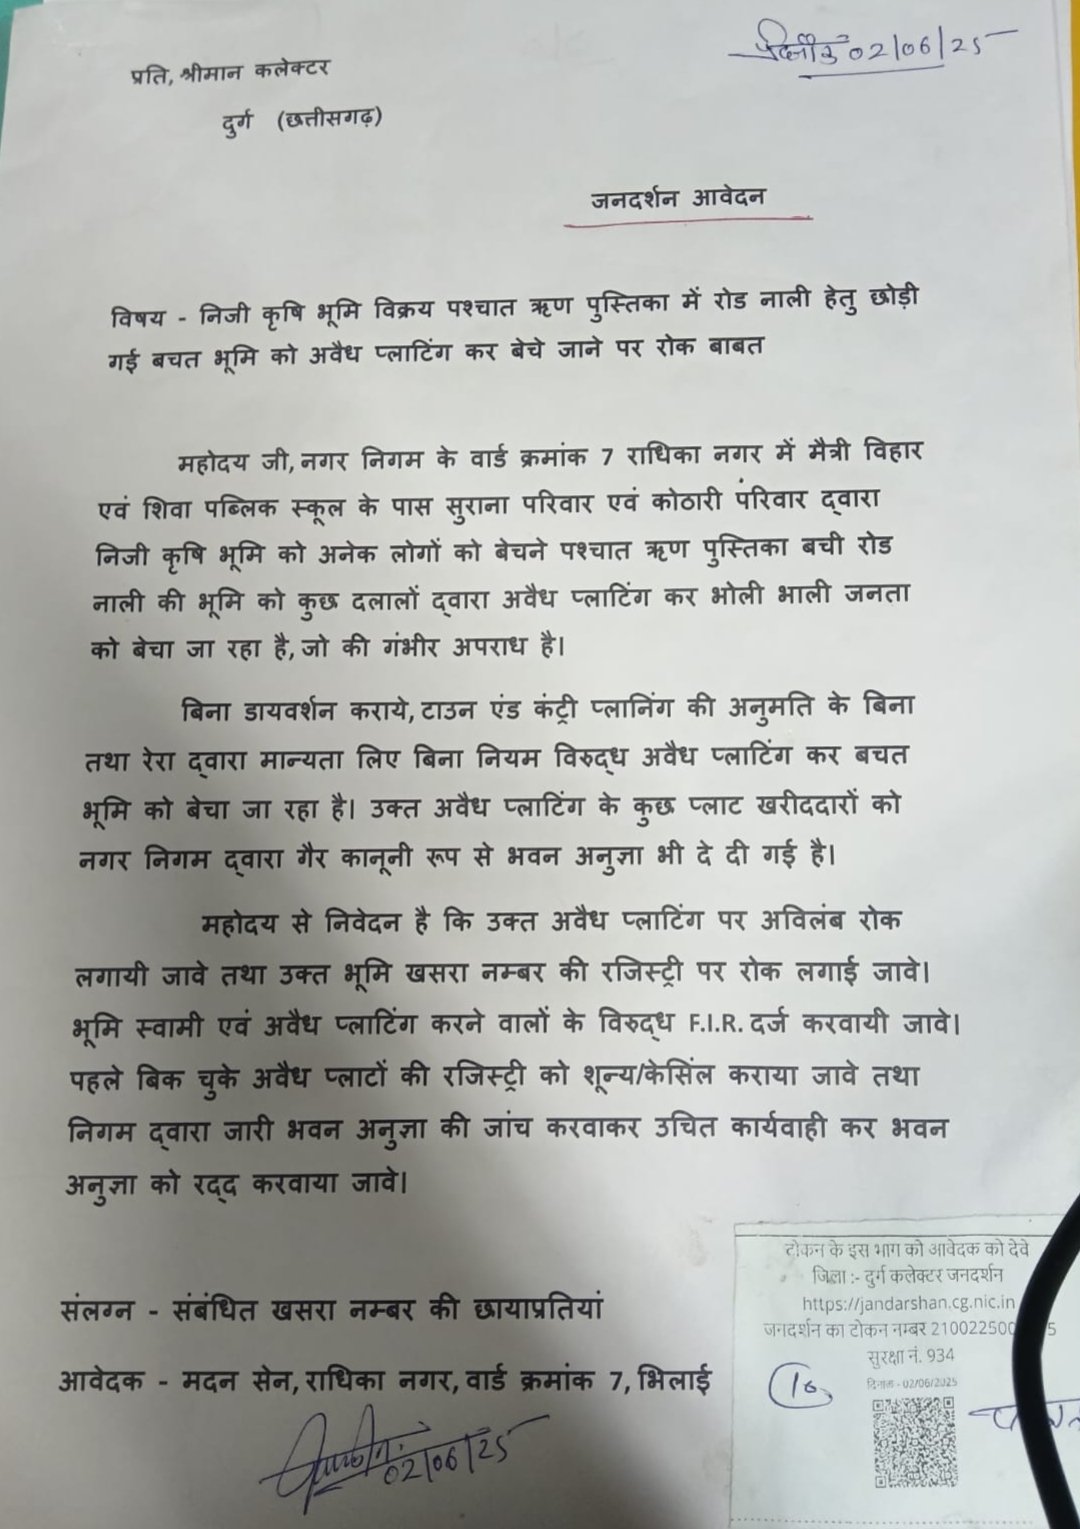 दिनाँक 02/06/25
प्रति, श्रीमान कलेक्टर
दुर्ग (छत्तीसगढ़)
जनदर्शन आवेदन
विषय - निजी कृषि भूमि विक्रय पश्चात ऋण पुस्तिका में रोड नाली हेतु छोड़ी
गई बचत भूमि को अवैध प्लाटिंग कर बेचे जाने पर रोक बाबत
महोदय जी, नगर निगम के वार्ड क्रमांक 7 राधिका नगर में मैत्री विहार
एवं शिवा पब्लिक स्कूल के पास सुराना परिवार एवं कोठारी परिवार द्वारा
निजी कृषि भूमि को अनेक लोगों को बेचने पश्चात ऋण पुस्तिका बची रोड
नाली की भूमि को कुछ दलालों द्वारा अवैध प्लाटिंग कर भोली भाली जनता
को बेचा जा रहा है, जो की गंभीर अपराध है।
बिना डायवर्शन कराये, टाउन एंड कंट्री प्लानिंग की अनुमति के बिना
तथा रेरा द्वारा मान्यता लिए बिना नियम विरुद्ध अवैध प्लाटिंग कर बचत
भूमि को बेचा जा रहा है। उक्त अवैध प्लाटिंग के कुछ प्लाट खरीददारों को
नगर निगम द्वारा गैर कानूनी रूप से भवन अनुज्ञा भी दे दी गई है।
महोदय से निवेदन है कि उक्त अवैध प्लाटिंग पर अविलंब रोक
लगायी जावे तथा उक्त भूमि खसरा नम्बर की रजिस्ट्री पर रोक लगाई जावे।
भूमि स्वामी एवं अवैध प्लाटिंग करने वालों के विरुद्ध F.I.R. दर्ज करवायी जावे।
पहले बिक चुके अवैध प्लाटों की रजिस्ट्री को शून्य/केसिंल कराया जावे तथा
निगम द्वारा जारी भवन अनुज्ञा की जांच करवाकर उचित कार्यवाही कर भवन
अनुज्ञा को रद्द करवाया जावे।
संलग्न - संबंधित खसरा नम्बर की छायाप्रतियां
आवेदक - मदन सेन, राधिका नगर, वार्ड क्रमांक 7, भिलाई
02/06/25
टोकन के इस भाग को आवेदक को देवे
जिला :- दुर्ग कलेक्टर जनदर्शन
https://jandarshan.cg.nic.in
जनदर्शन का टोकन नम्बर 21002250
सुरक्षा नं. 934
दिनांक - 02/06/2025